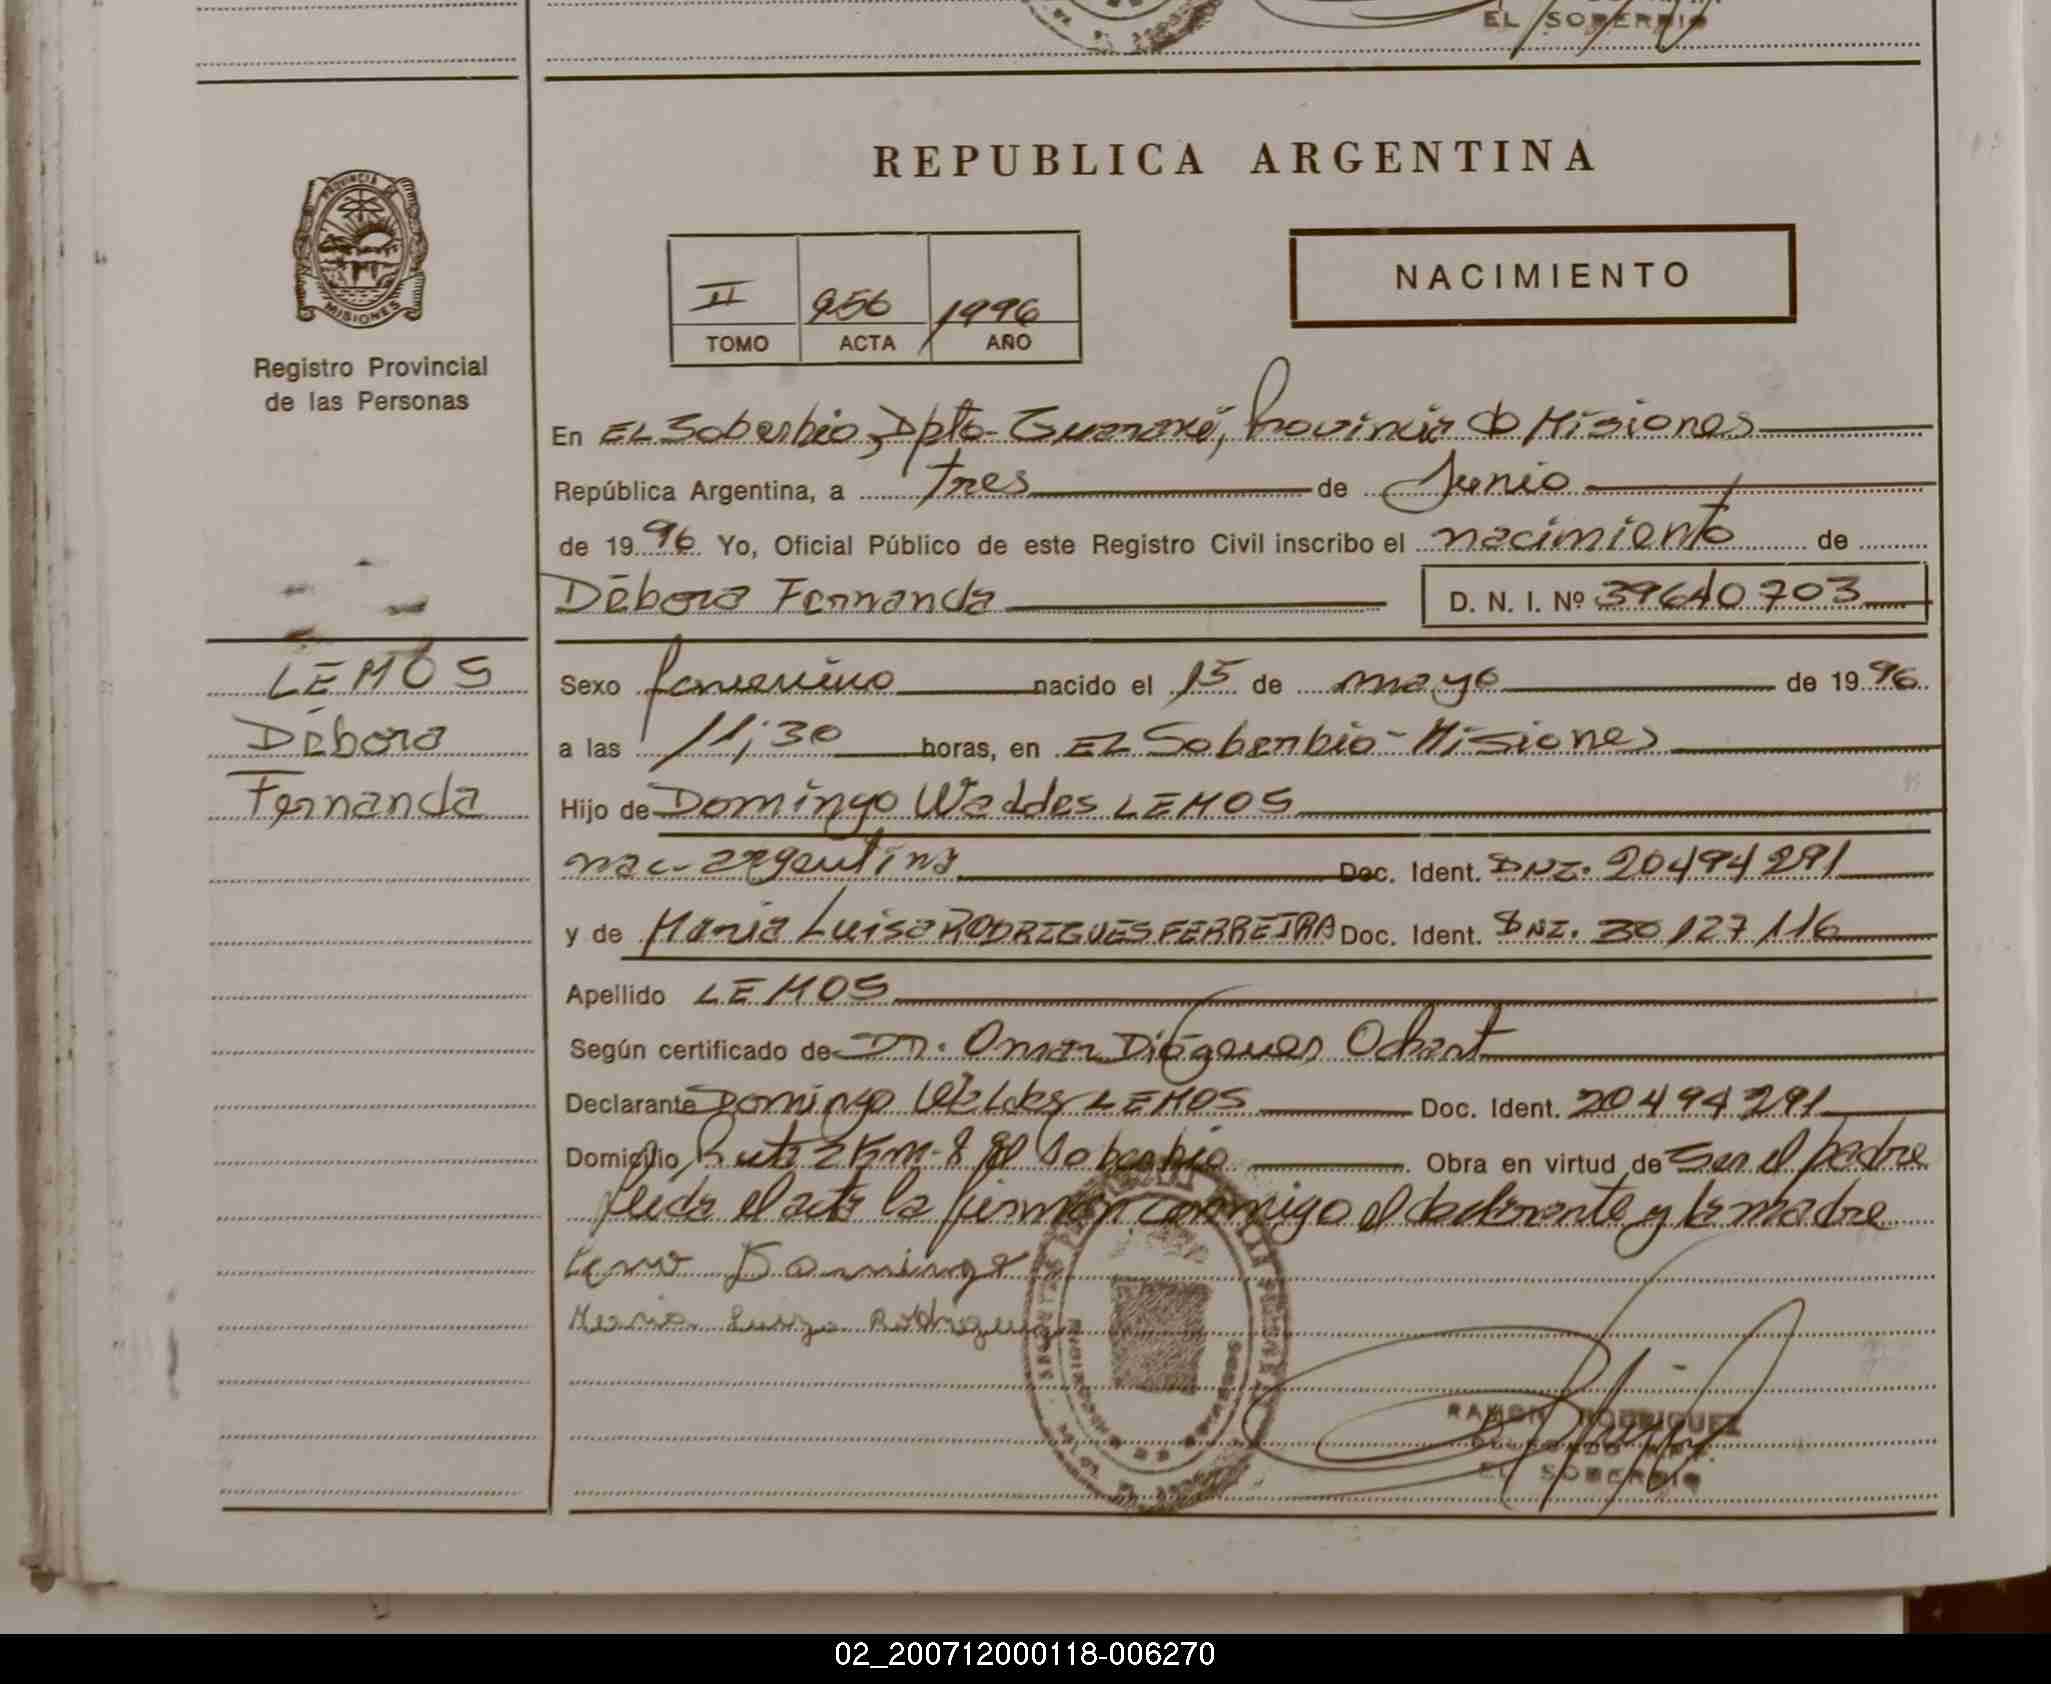 EL SOBERBIO
REPUBLICA ARGENTINA
PROVINCIA DE
MISIONES
Registro Provincial
de las Personas
II 956 1996
TOMO ACTA AÑO
NACIMIENTO
En EL Soberbio, Dpto- Guaraní, Provincia de Misiones
República Argentina, a tres de Junio
de 1996 Yo, Oficial Público de este Registro Civil inscribo el nacimiento de
Débora Fernanda D. N. I. Nº 39640703
LEMOS
Débora
Fernanda
Sexo femenino nacido el 15 de mayo de 1996
a las 11;30 horas, en EL Soberbio - Misiones
Hijo de Domingo Waldes LEMOS
nac- argentina Doc. Ident. DNI. 20494291
y de Maria Luisa RODRIGUES FERREIRA Doc. Ident. DNI. 30127116
Apellido LEMOS
Según certificado de Dr. Omar Diógenes Ochart
Declarante Domingo Waldes LEMOS Doc. Ident. 20494291
Domicilio Ruta 2 Km- 8 El Soberbio. Obra en virtud de Ser el padre
leida el acta la firman conmigo el declarante y la madre
Domingo
Maria Luiza Rodrigues
RAMON RODRIGUEZ
EL SOBERBIO
02_200712000118-006270